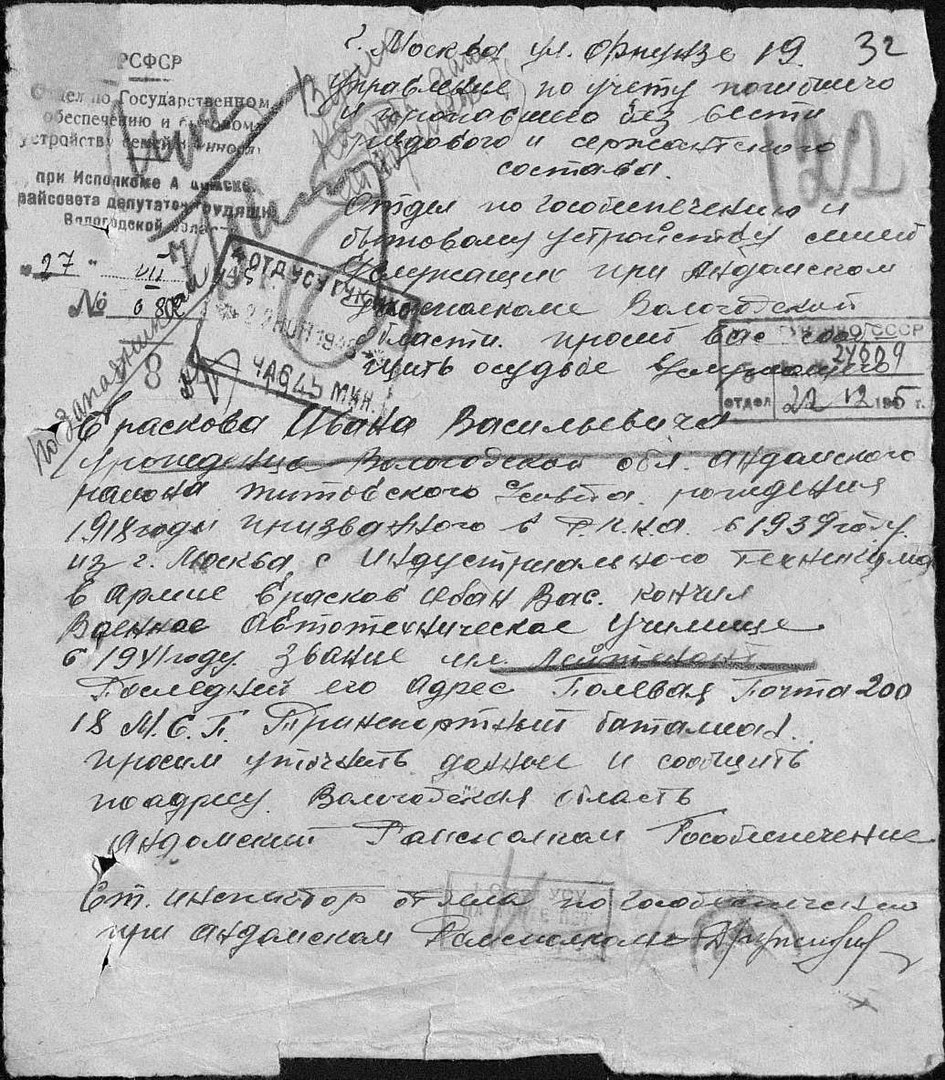 РСФСР
Отдел по Государственном
обеспечению и бытовом
устройству семей
при Исполкоме А
райсовета депутатов трудящ
Вологодской обла
"27" VII 1945 г.
№ 0 802
8
г. Москва ул. Фрунзе 19.
32
Управление по учету погибшего
и пропавшего без вести
рядового и сержантского
состава.
122
Отдел по гособеспечению и
бытовому устройству семей
служащих при Андомском
Райисполкоме Вологодской
области просит Вас сооб
щить осудьбе
ЧАС 45 МИН.
СССР
24609
отдел 22 12 195 г.
Ераскова Ивана Васильевича
урожденца Вологодской обл. Андомского
района Титовского с/совета рождения
1918 годы призванного в Р.К.К.А. в 1939 году
из г. Москва с Индустриального Техникума
в Армие Ерасков Иван Вас. кончил
Военное Автотехническое Училище
в 1941 году звание мл. лейтенант
Последний его Адрес Полевая Почта 200
18 М.С.П. Транспортный баталион.
просим уточнить данные и сообщить
по адресу Вологодская область
Андомский Райсполком Гособеспечение
Ст. инспектор отдела по гособеспечению
при Андомском Райсполкоме